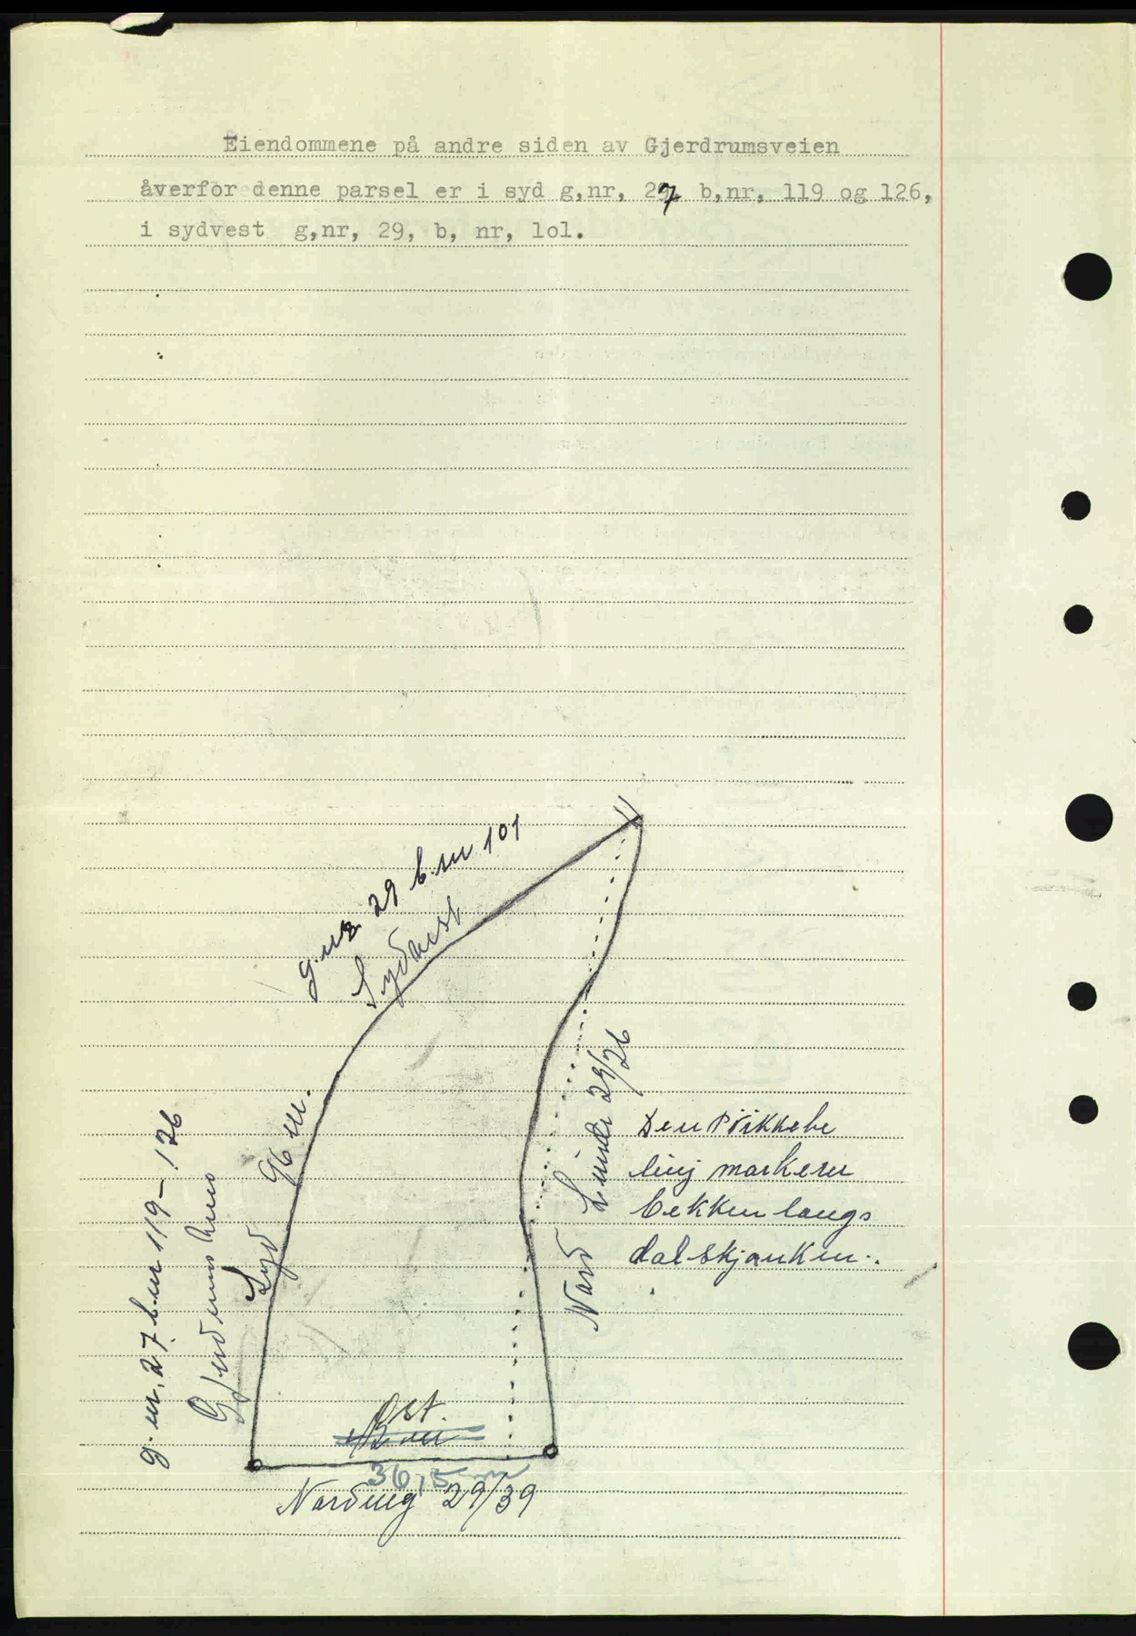 Eiendommene på andre siden av Gjerdrumsveien
åverfor denne parsel er i syd g,nr, 27 b,nr, 119 og 126,
i sydvest g,nr, 29, b, nr, lol.
g.nr. 29 b.nr 101
Sydvest
96 m.
Syd
g.nr. 27 b.nr 119 - 126
Nord Linde 29/26
Den Prikkede
linj markerer
bekken langs
dalskjønken.
Øst.
36,5 m
Nording 29/39